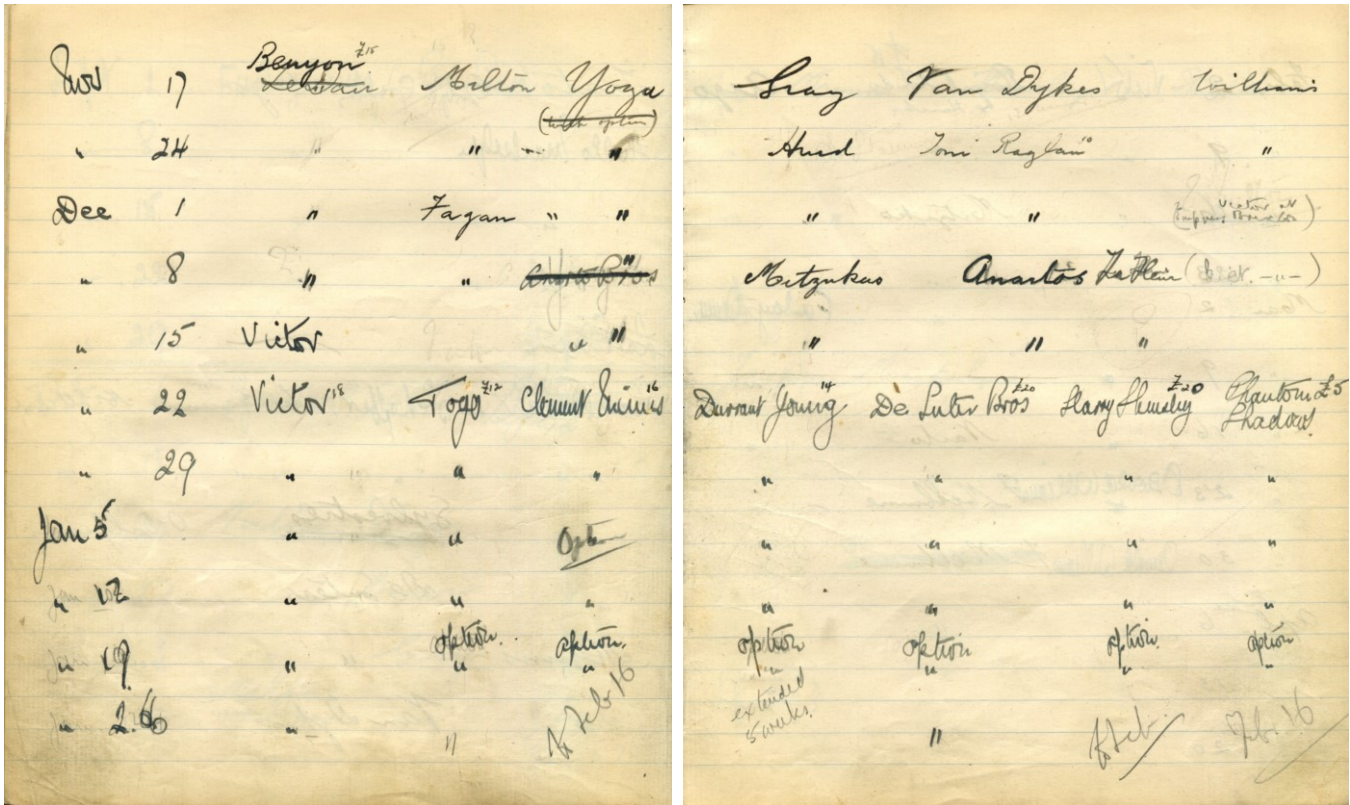 Nov 17 Benyon £15 Milton Yoga
(with option)
" 24 " " " "
Dec 1 " Fagan " "
" 8 " " Bros "
" 15 Victor " "
" 22 Victor 18 Togo £12 Clement 16
" 29 " " "
Jan 5 " " Option
" 12 " " "
option. option.
" 19 " " "
" 26 " " to Feb 16
Gray Van Dykes Williams
Hurd Toni Raglan 10 "
" " (Victor at
)
Mitzukas Anartos La Fleur ( - " - )
" " "
Durrant Young 14 De Suter Bros £20 Harry Hemsley £20 Phantom £5
Shadows
" " " "
" " " "
" " " "
option option option. option
" " " "
extended
5 weeks. " to Feb Feb 16